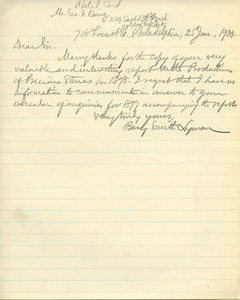 Postal Card
Mr. Geo. F. Kunz,
708 Locust St., Philadelphia, 25 Jan., 1900.
Dear Sir
Many thanks for the copy of your very
valuable and interesting report on the Production
of Precious Stones in 1898. I regret that I have no
information to communicate in answer to your
circular of inquiries for 1899 accompanying the report.
Very truly yours,
Benj. Smith Lyman